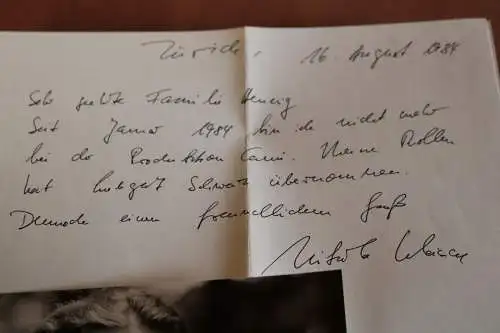 Zürich, 16. August 1984
Sehr geehrte Familie Herzig
Seit Januar 1984 bin ich nicht mehr
bei der Produktion Cami. Meine Rollen
hat Schwarz übernommen.
Dennoch einen freundlichen Gruß